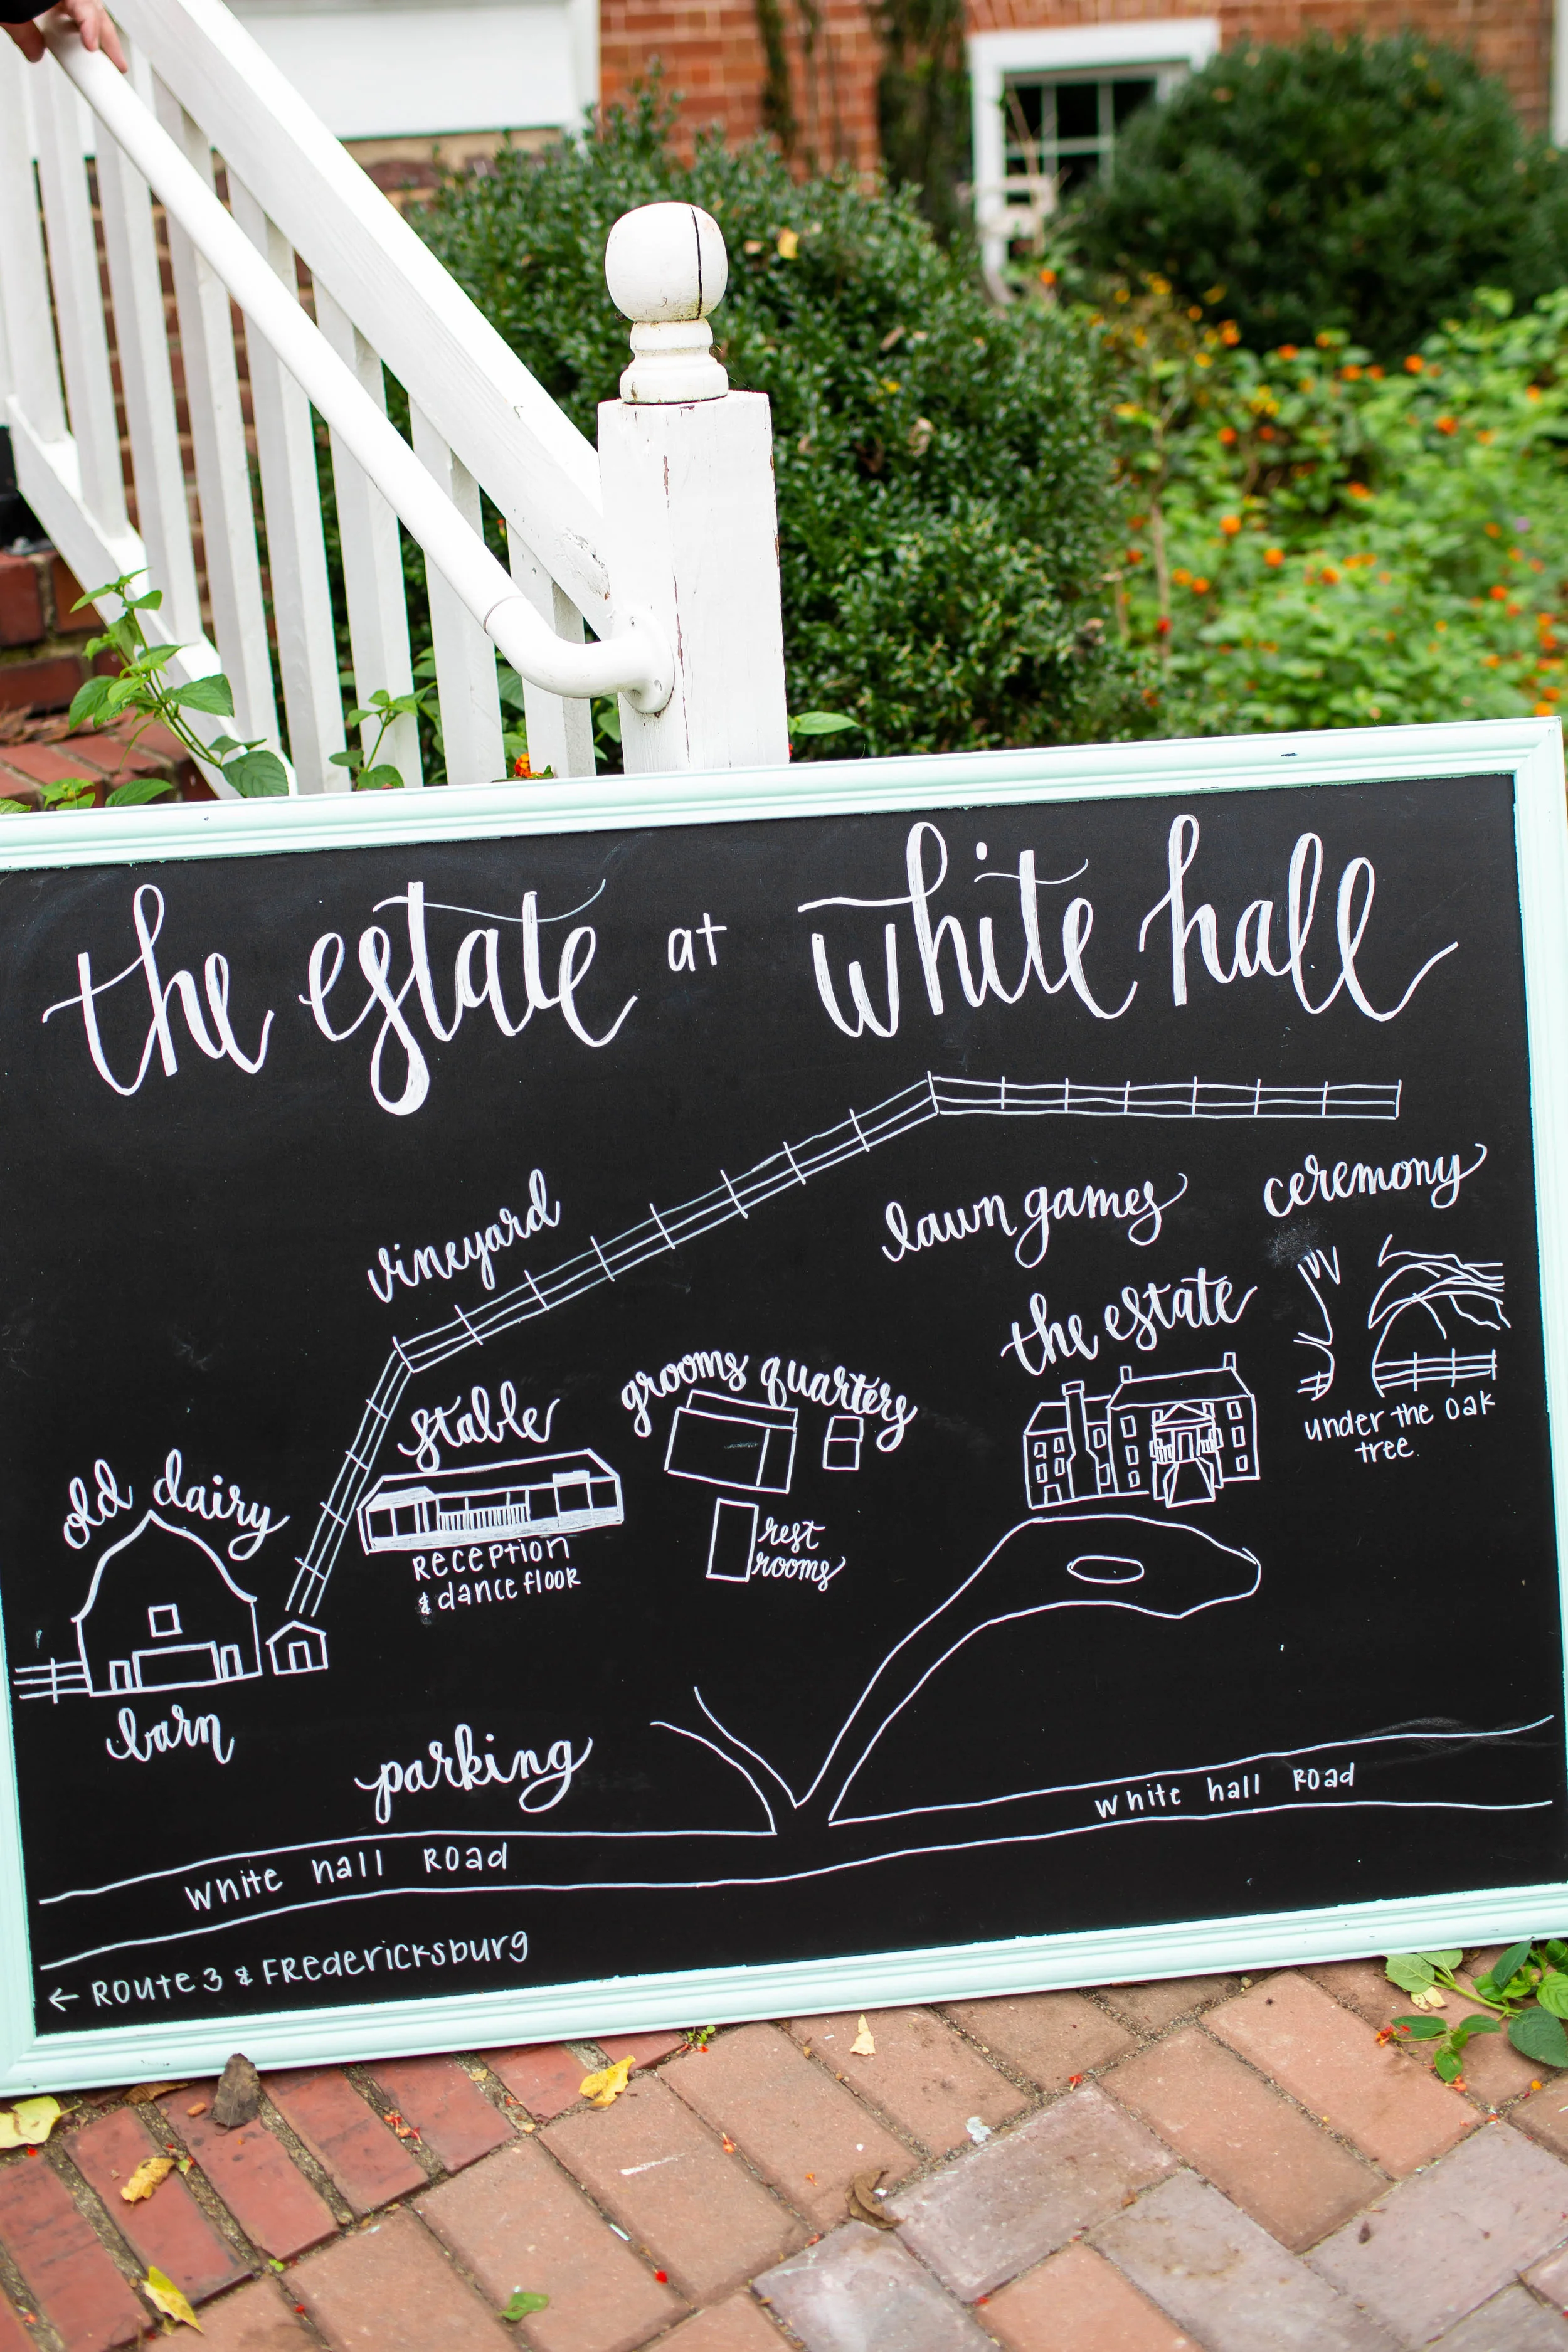 the estate at white hall
vineyard
lawn games
ceremony
the estate
under the oak
tree
grooms quarters
stable
Reception
& dance floor
rest
rooms
old dairy
barn
parking
white hall Road
white hall Road
← Route 3 & Fredericksburg